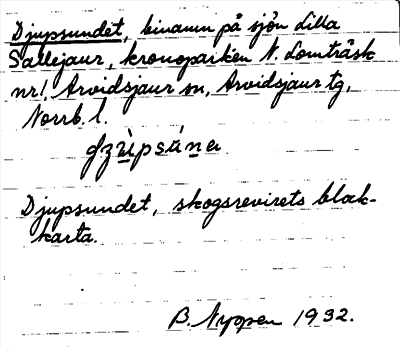 Djupsundet, binamn på sjön Lilla
Sallejaur, kronoparken N. Lomträsk
nr1, Arvidsjaur sn, Arvidsjaur tg,
Norrb. l.
Djupsundet, skogsrevirets block-
karta.
B. Nyppen 1932.